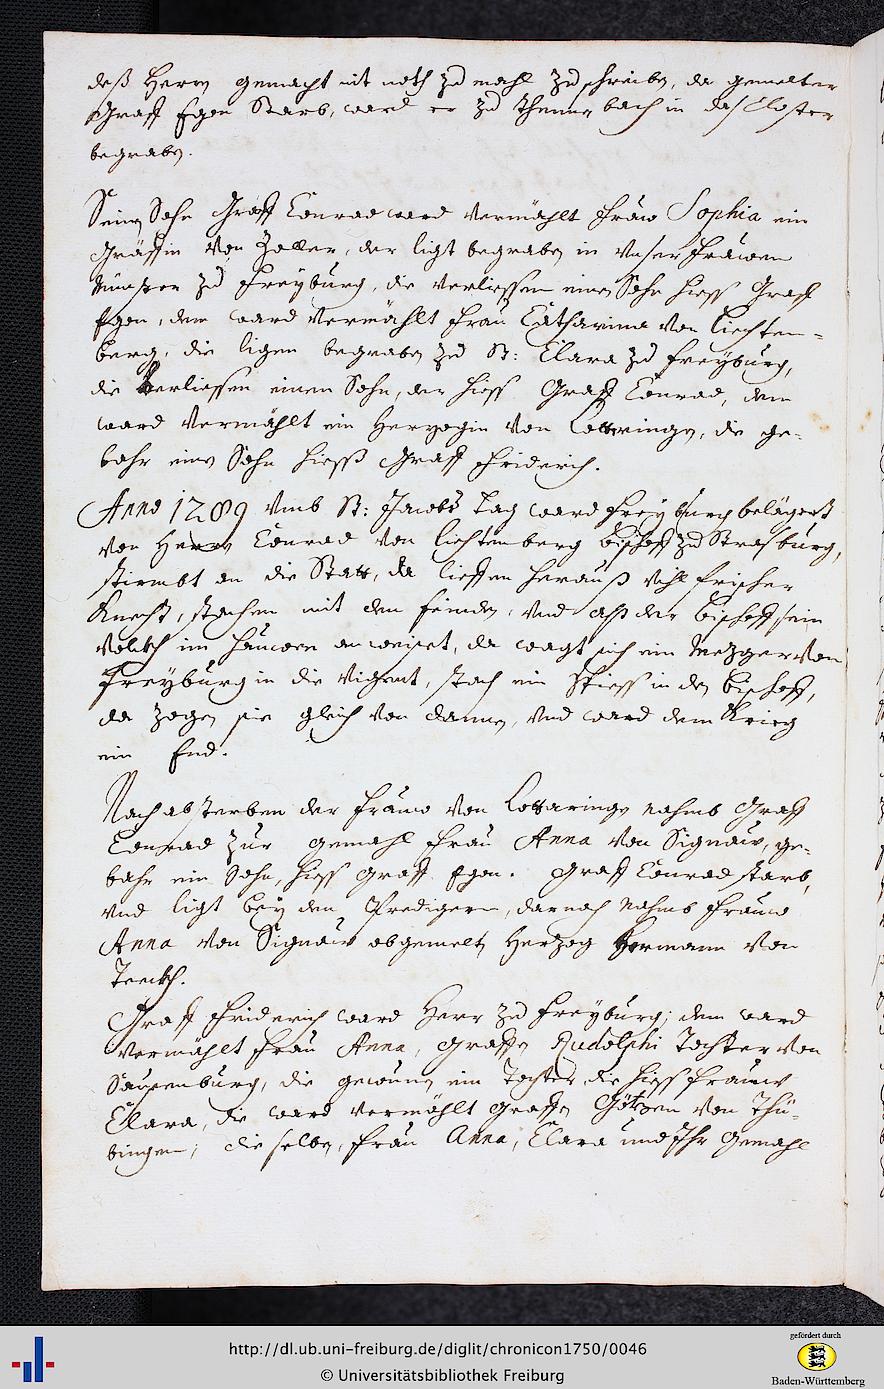 deß Herrn gemacht nit noth zu mahl zu schreiben, da gemelter
Graff Egon Starb, ward er zu Thennenbach in das Closter
begraben.
Seinen Sohn Graff Conrad ward vermählt fraw Sophia ein
Gräffin von Zoller, der ligt begraben in Unser frawen
Münster zu Freyburg, die verliessen einen Sohn hiess Graff
Egon, dem ward vermählt frau Catharina von Liechten-
berg, die ligen begraben zu St: Clara zu Freyburg,
die Verliessen einen Sohn, der hiess Graff Conrad, dem
ward vermählt ein Herzogin von Lottringen, die ge-
bahr einen Sohn hiess Graff Friderich.
Anno 1289 Umb St: Jacobs Tag ward Freyburg belägert
von Herrn Conrad von Liechtenberg Bischoff zu Strasburg,
stirmbt an die Statt, da lieffen herauß vihl frischer
Knecht, stachen mit den feinden, und alß der Bischoff sein
volckh im hauwen anweiset, da wagt sich ein Metzger von
Freyburg in die, stach ein Spiess in den Bischoff,
da zogen sie gleich von dannen, und ward dem Krieg
ein End.
Nach absterben der frauw von Lottaringen nahmb Graff
Conrad zur gemahl frau Anna von Signauw, ge-
bahr ein Sohn, hiess Graff Egon. Graff Conrad starb,
und ligt bey den Predigern, darnach nahmb frauw
Anna von Signauw obgemelt Herzog Hermann von
Teeckh.
Graff Friderich ward Herr zu Freyburg; dem ward
vermählt frau Anna, Graffen Rudolphi Tochter von
Sausenburg, die gewunne ein Tochter die hiess frauw
Clara, die ward vermählt Graffen Götzen von Thü-
bingen; die selbe, frau Anna, Clara und Ihr Gemahl
http://dl.ub.uni-freiburg.de/diglit/chronicon1750/0046
© Universitätsbibliothek Freiburg
gefördert durch
Baden-Württemberg